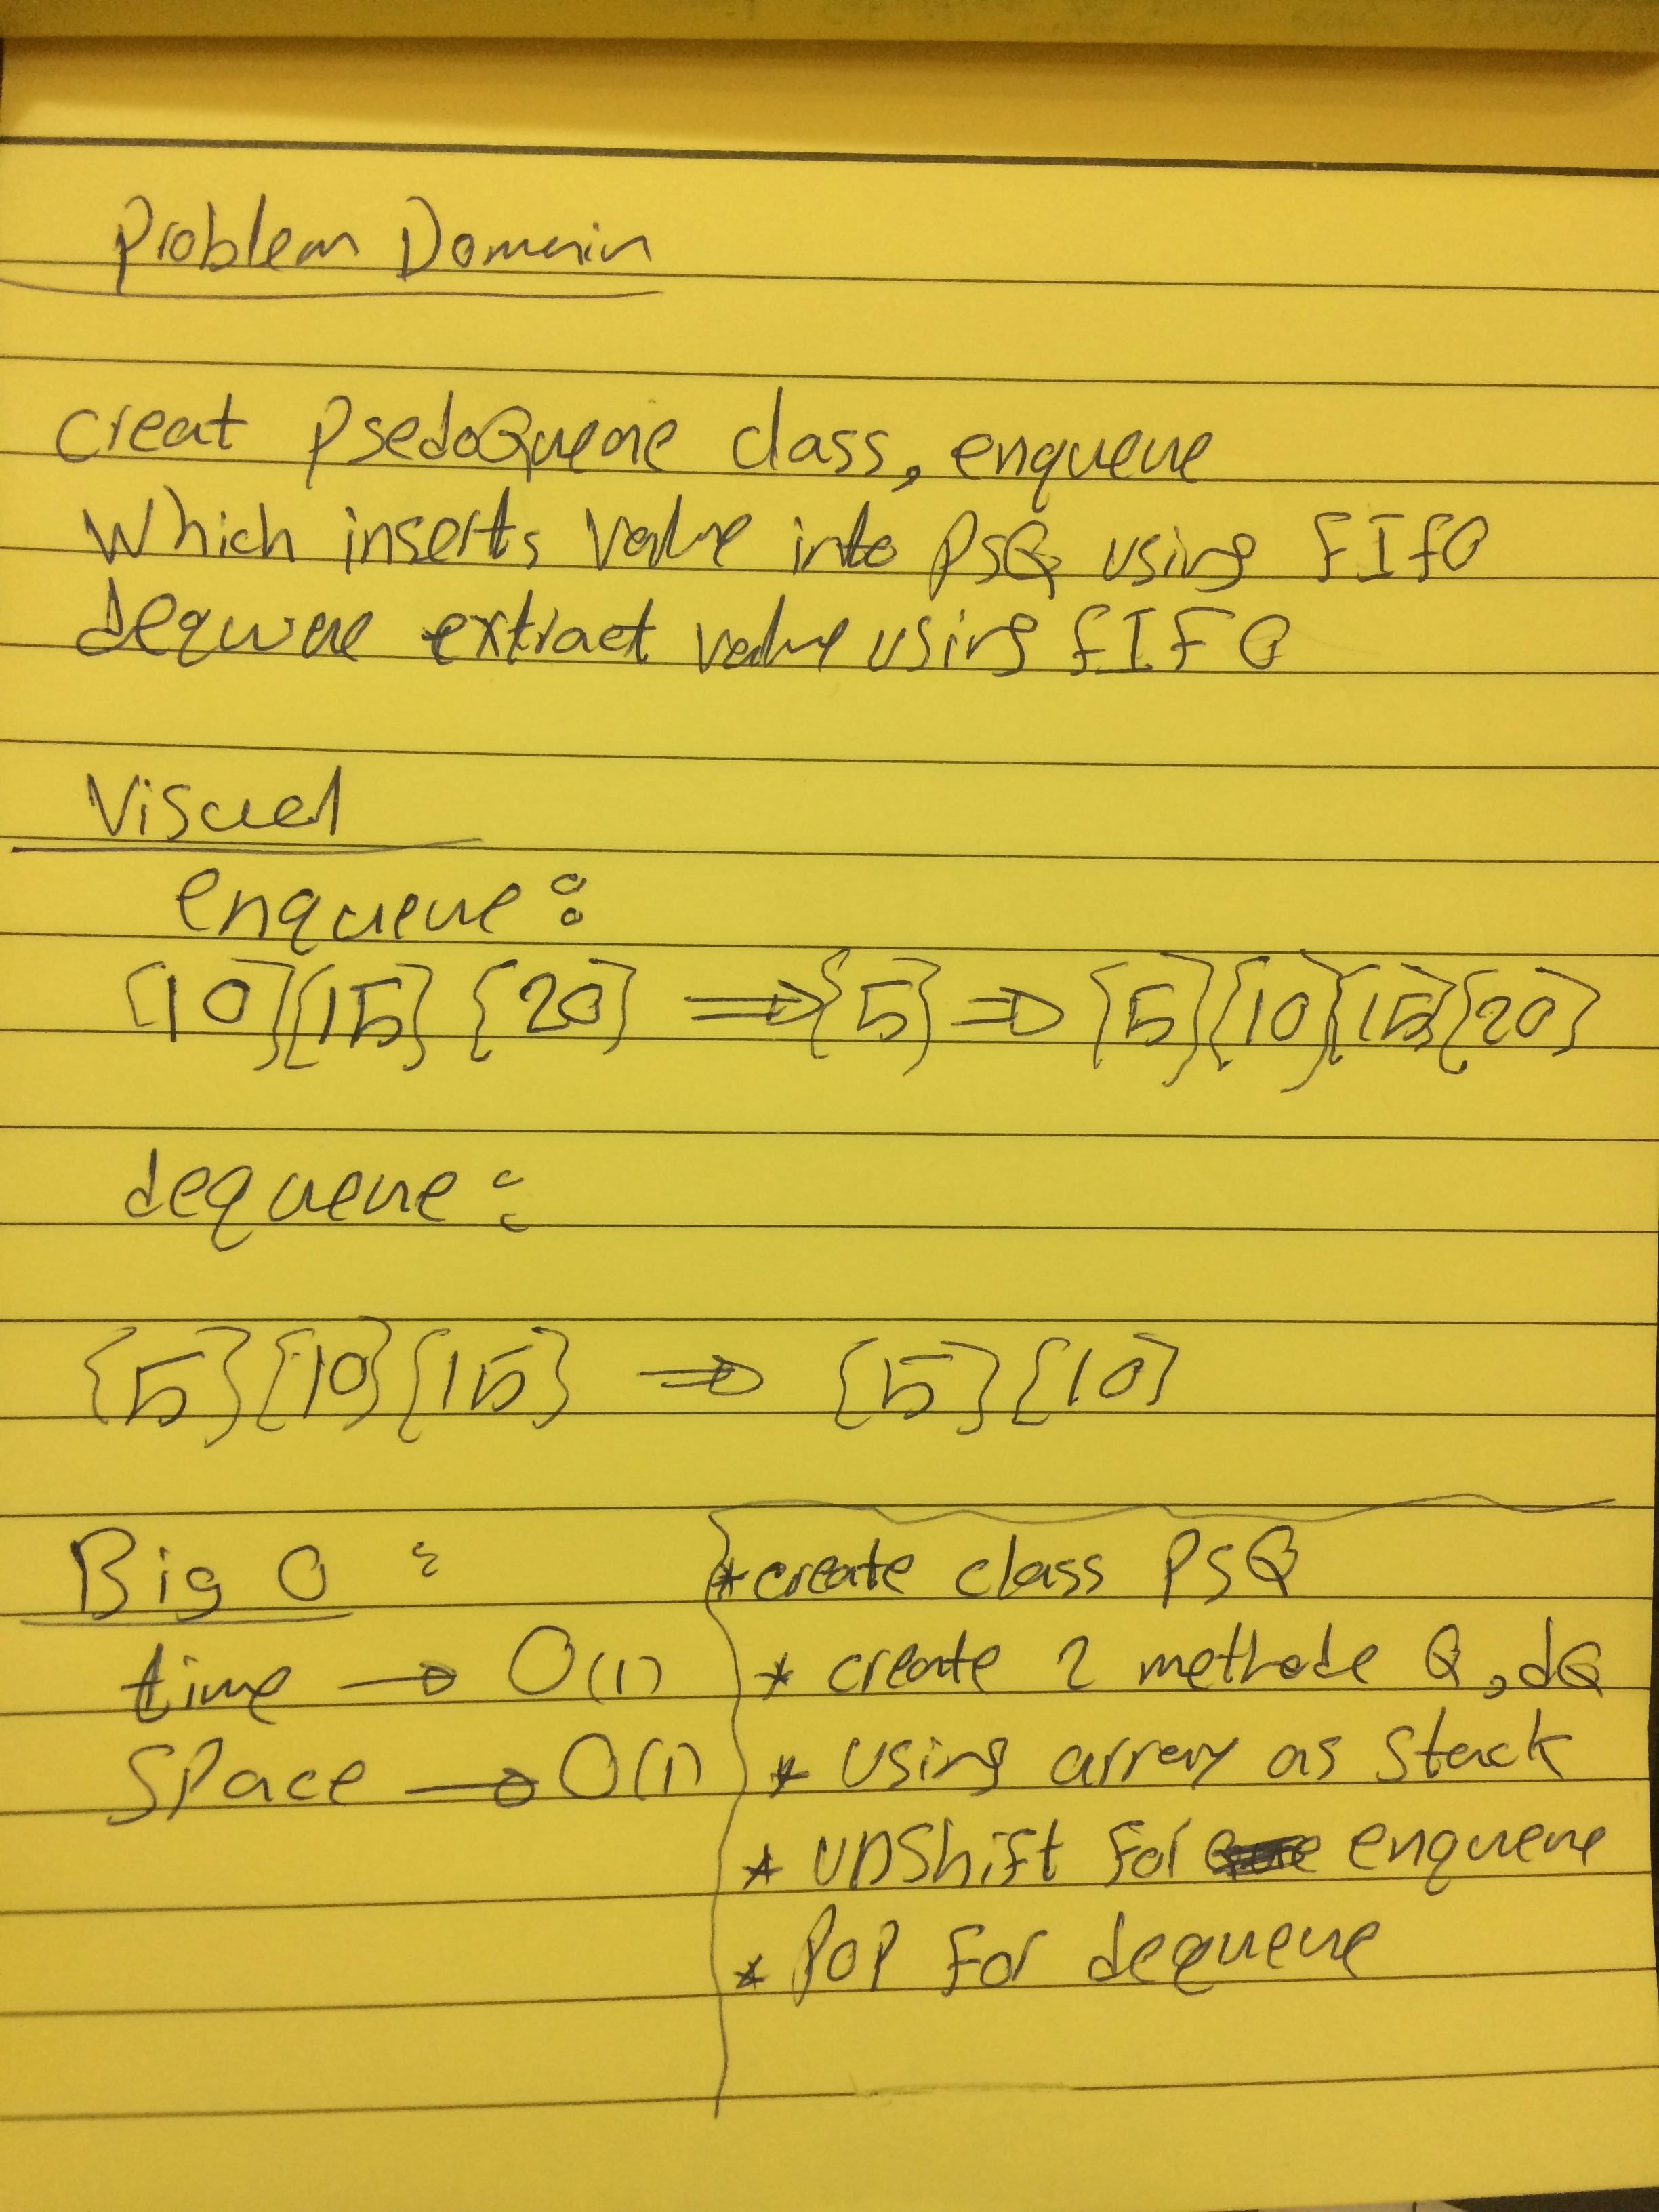 Problem Domain
creat PsedoQueue class, enqueue
Which inserts value into PSQ using FIFO
dequeue extract value using FIFO
Visual
enqueue:
[10][15] [20] ⇒ [5] ⇒ [5][10][15][20]
dequeue:
[5][10][15] ⇒ [5][10]
Big O :
time → O(1)
Space → O(1)
*create class PSQ
* create 2 methode Q, dQ
* using array as Stack
* unshift for enqueue
* POP for dequeue